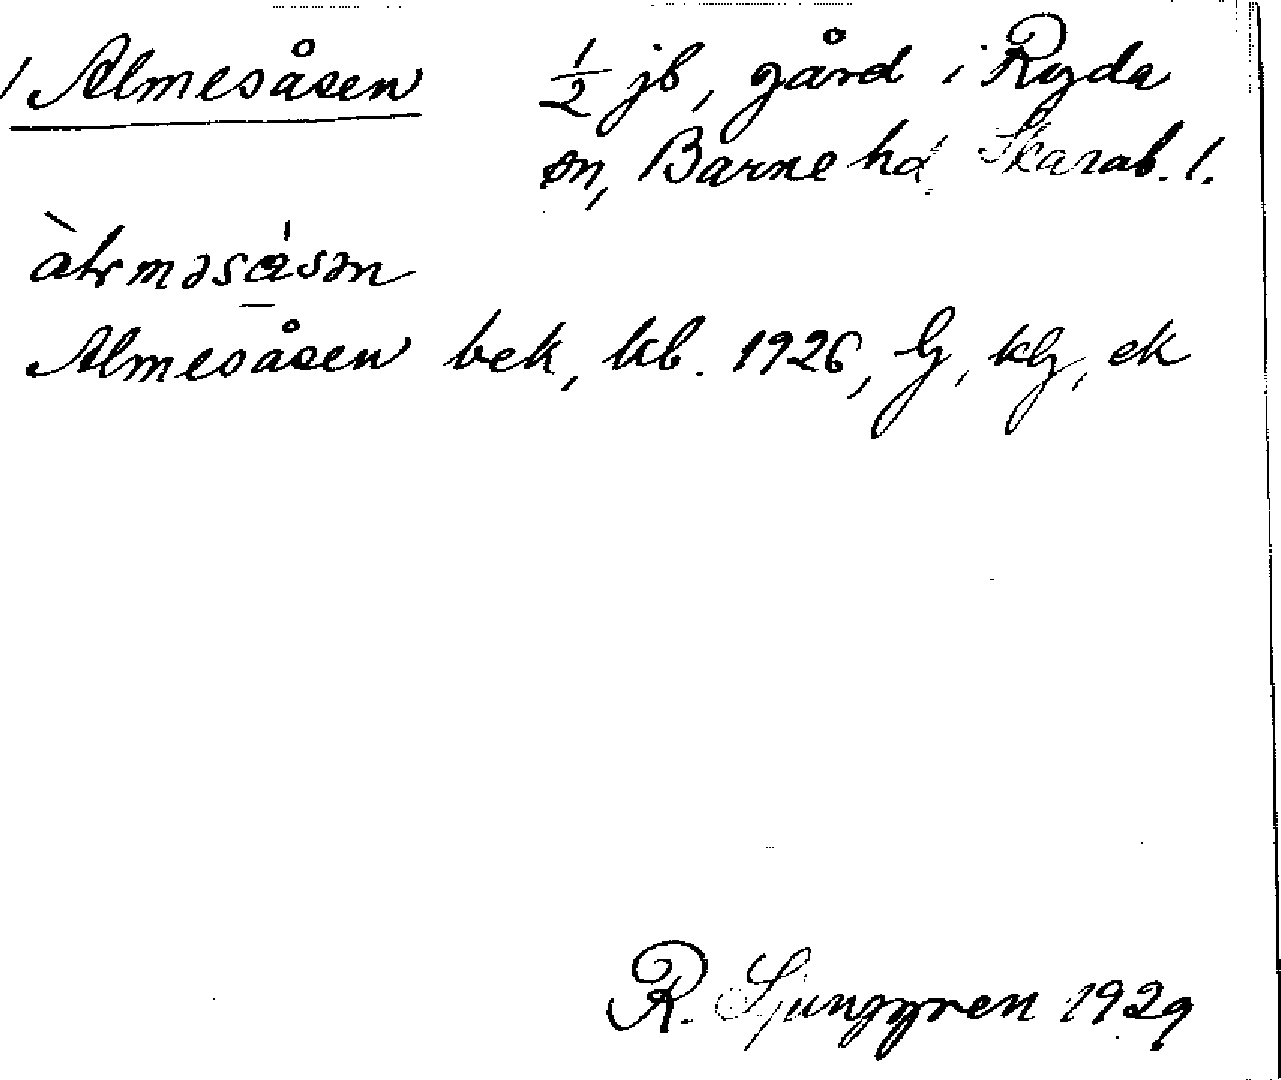 Almesåsen ½ jb, gård i Ryda
sn, Barne hd. Skarab. l.
Almesåsen bek, kb. 1926, G, kG, ek
R. Sjunggren 1929